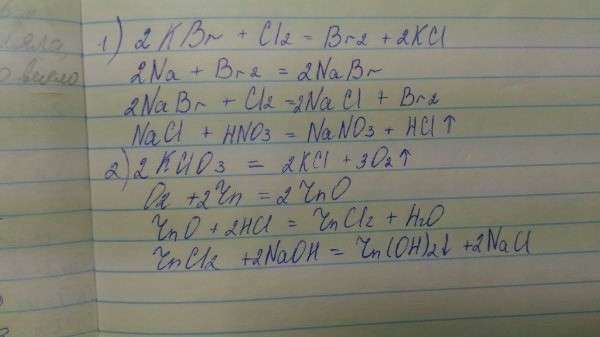 1) 2KBr + Cl2 = Br2 + 2KCl
2Na + Br2 = 2NaBr
2NaBr + Cl2 = 2NaCl + Br2
NaCl + HNO3 = NaNO3 + HCl↑
2) 2KClO3 = 2KCl + 3O2↑
O2 + 2Zn = 2ZnO
ZnO + 2HCl = ZnCl2 + H2O
ZnCl2 + 2NaOH = Zn(OH)2↓ + 2NaCl